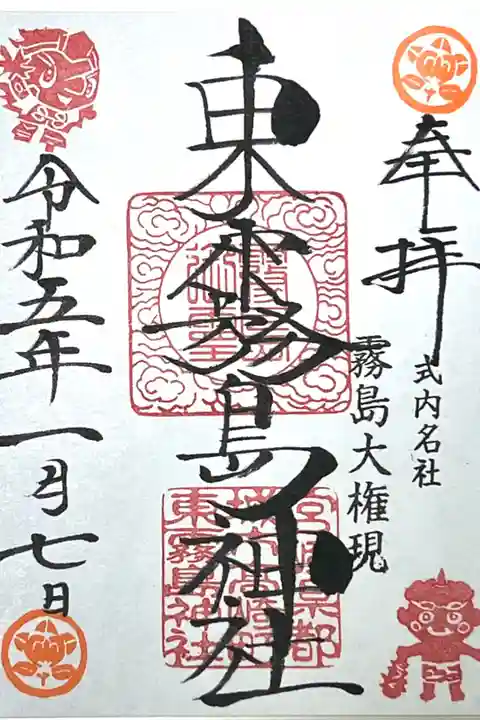 奉拝
式内名社
霧島大権現
東霧島神社
宮崎県都
城市高崎町
東霧島神社
令和五年一月七日